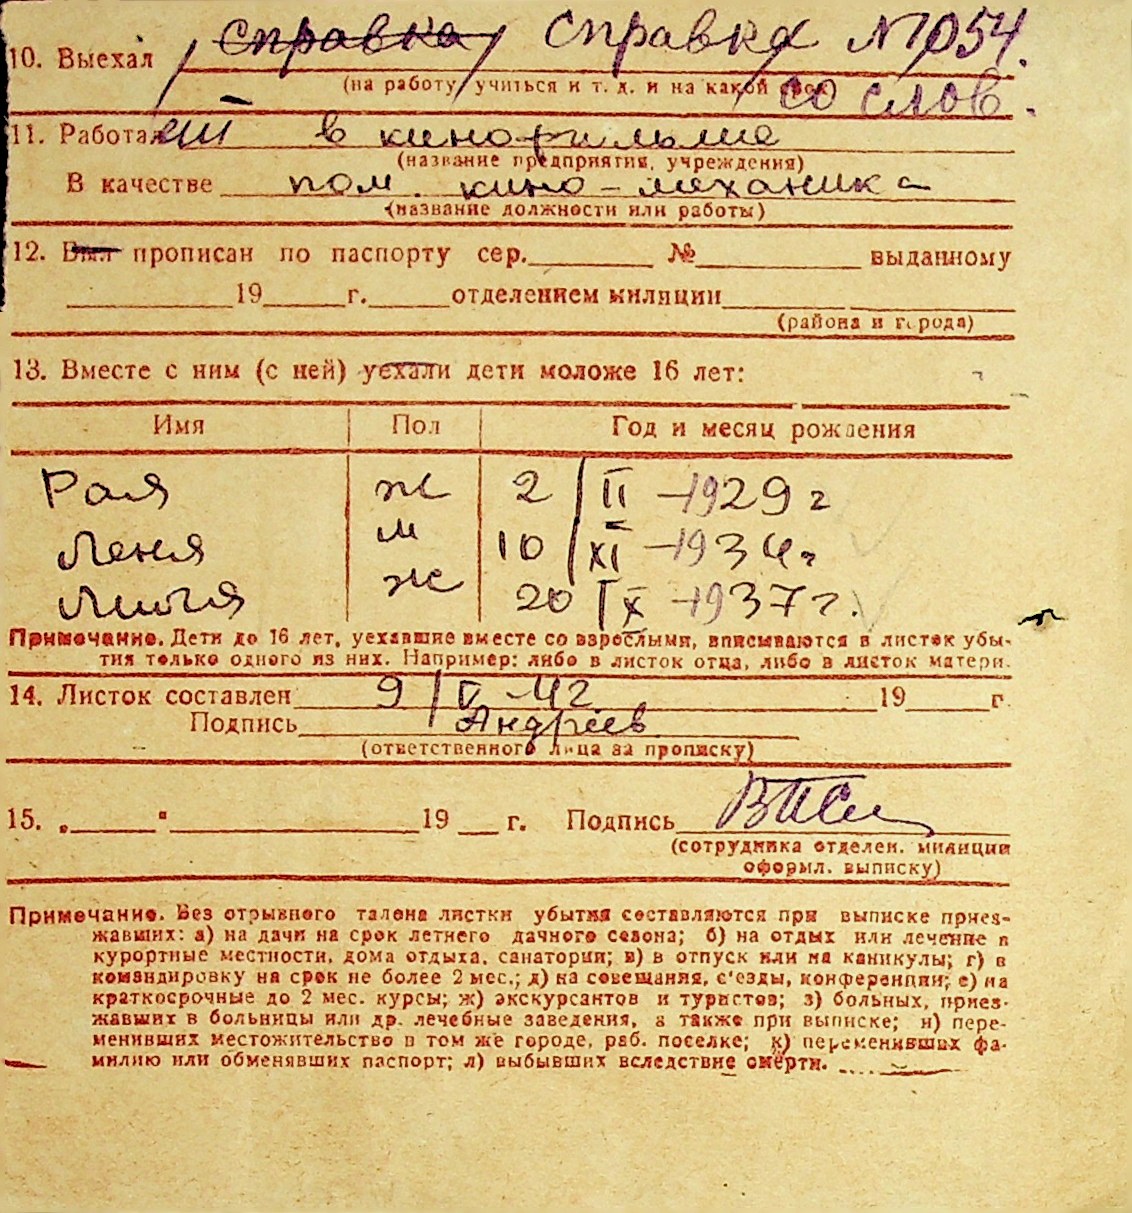 10. Выехал справка справка № 1054.
(на работу, учиться и т. д. и на какой срок)
со слов.
11. Работает в кинофильме
(название предприятия, учреждения)
В качестве пом. кино-механика
(название должности или работы)
12. Был прописан по паспорту сер. № выданному
19 г. отделением милиции
(района и города)
13. Вместе с ним (с ней) уехали дети моложе 16 лет:
Имя Пол Год и месяц рождения
Рая ж 2/II-1929 г
Леня м 10/XI-1934 г
Лиля ж 20/X-1937 г.
Примечание. Дети до 16 лет, уехавшие вместе со взрослыми, вписываются в листок убы-
тия только одного из них. Например: либо в листок отца, либо в листок матери.
14. Листок составлен 9/V-42 19 г.
Подпись Андреев
(ответственного лица за прописку)
15. „ " 19 г. Подпись
(сотрудника отделен. милиции
оформл. выписку)
Примечание. Без отрывного талона листки убытия составляются при выписке приез-
жавших: а) на дачи на срок летнего дачного сезона; б) на отдых или лечение в
курортные местности, дома отдыха, санатории; в) в отпуск или на каникулы; г) в
командировку на срок не более 2 мес.; д) на совещания, с'езды, конференции; е) на
краткосрочные до 2 мес. курсы; ж) экскурсантов и туристов; з) больных, приез-
жавших в больницы или др. лечебные заведения, а также при выписке; и) пере-
менивших местожительство в том же городе, раб. поселке; к) переменивших фа-
милию или обменявших паспорт; л) выбывших вследствие смерти.